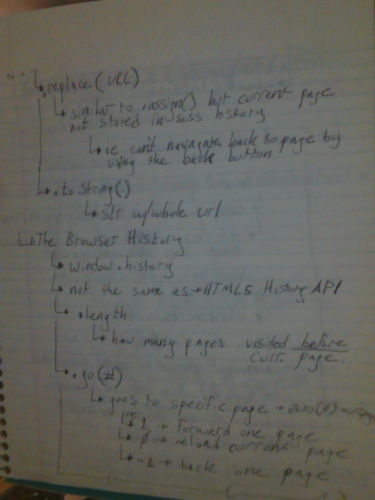 ↳ replace(URL)
↳ similar to .assign() but current page
not stored in sess history
↳ ie can't navagate back to page by
using the back button
↳ .toString()
↳ str w/whole url
↳ The Browser History
↳ window.history
↳ not the same as → HTML5 History API
↳ .length
↳ how many pages visited before
curr. page.
↳ .go(#)
↳ goes to specific page → zero(0)
↳ 1 → forward one page
↳ 0 → reload current page
↳ -1 → back one page